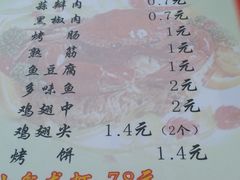 蒜瓣肉 0.7元
黑椒肉 0.7元
烤肠 1元
熟筋 1元
鱼豆腐 1元
多味鱼 2元
鸡翅中 2元
鸡翅尖 1.4元 (2个)
烤饼 1.4元
78元